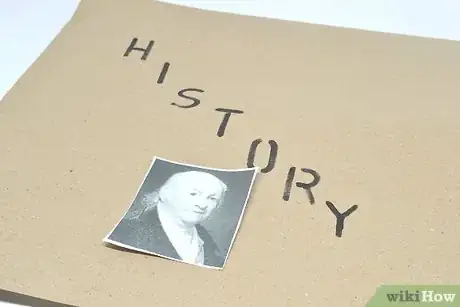 HISTORY
wikiHow